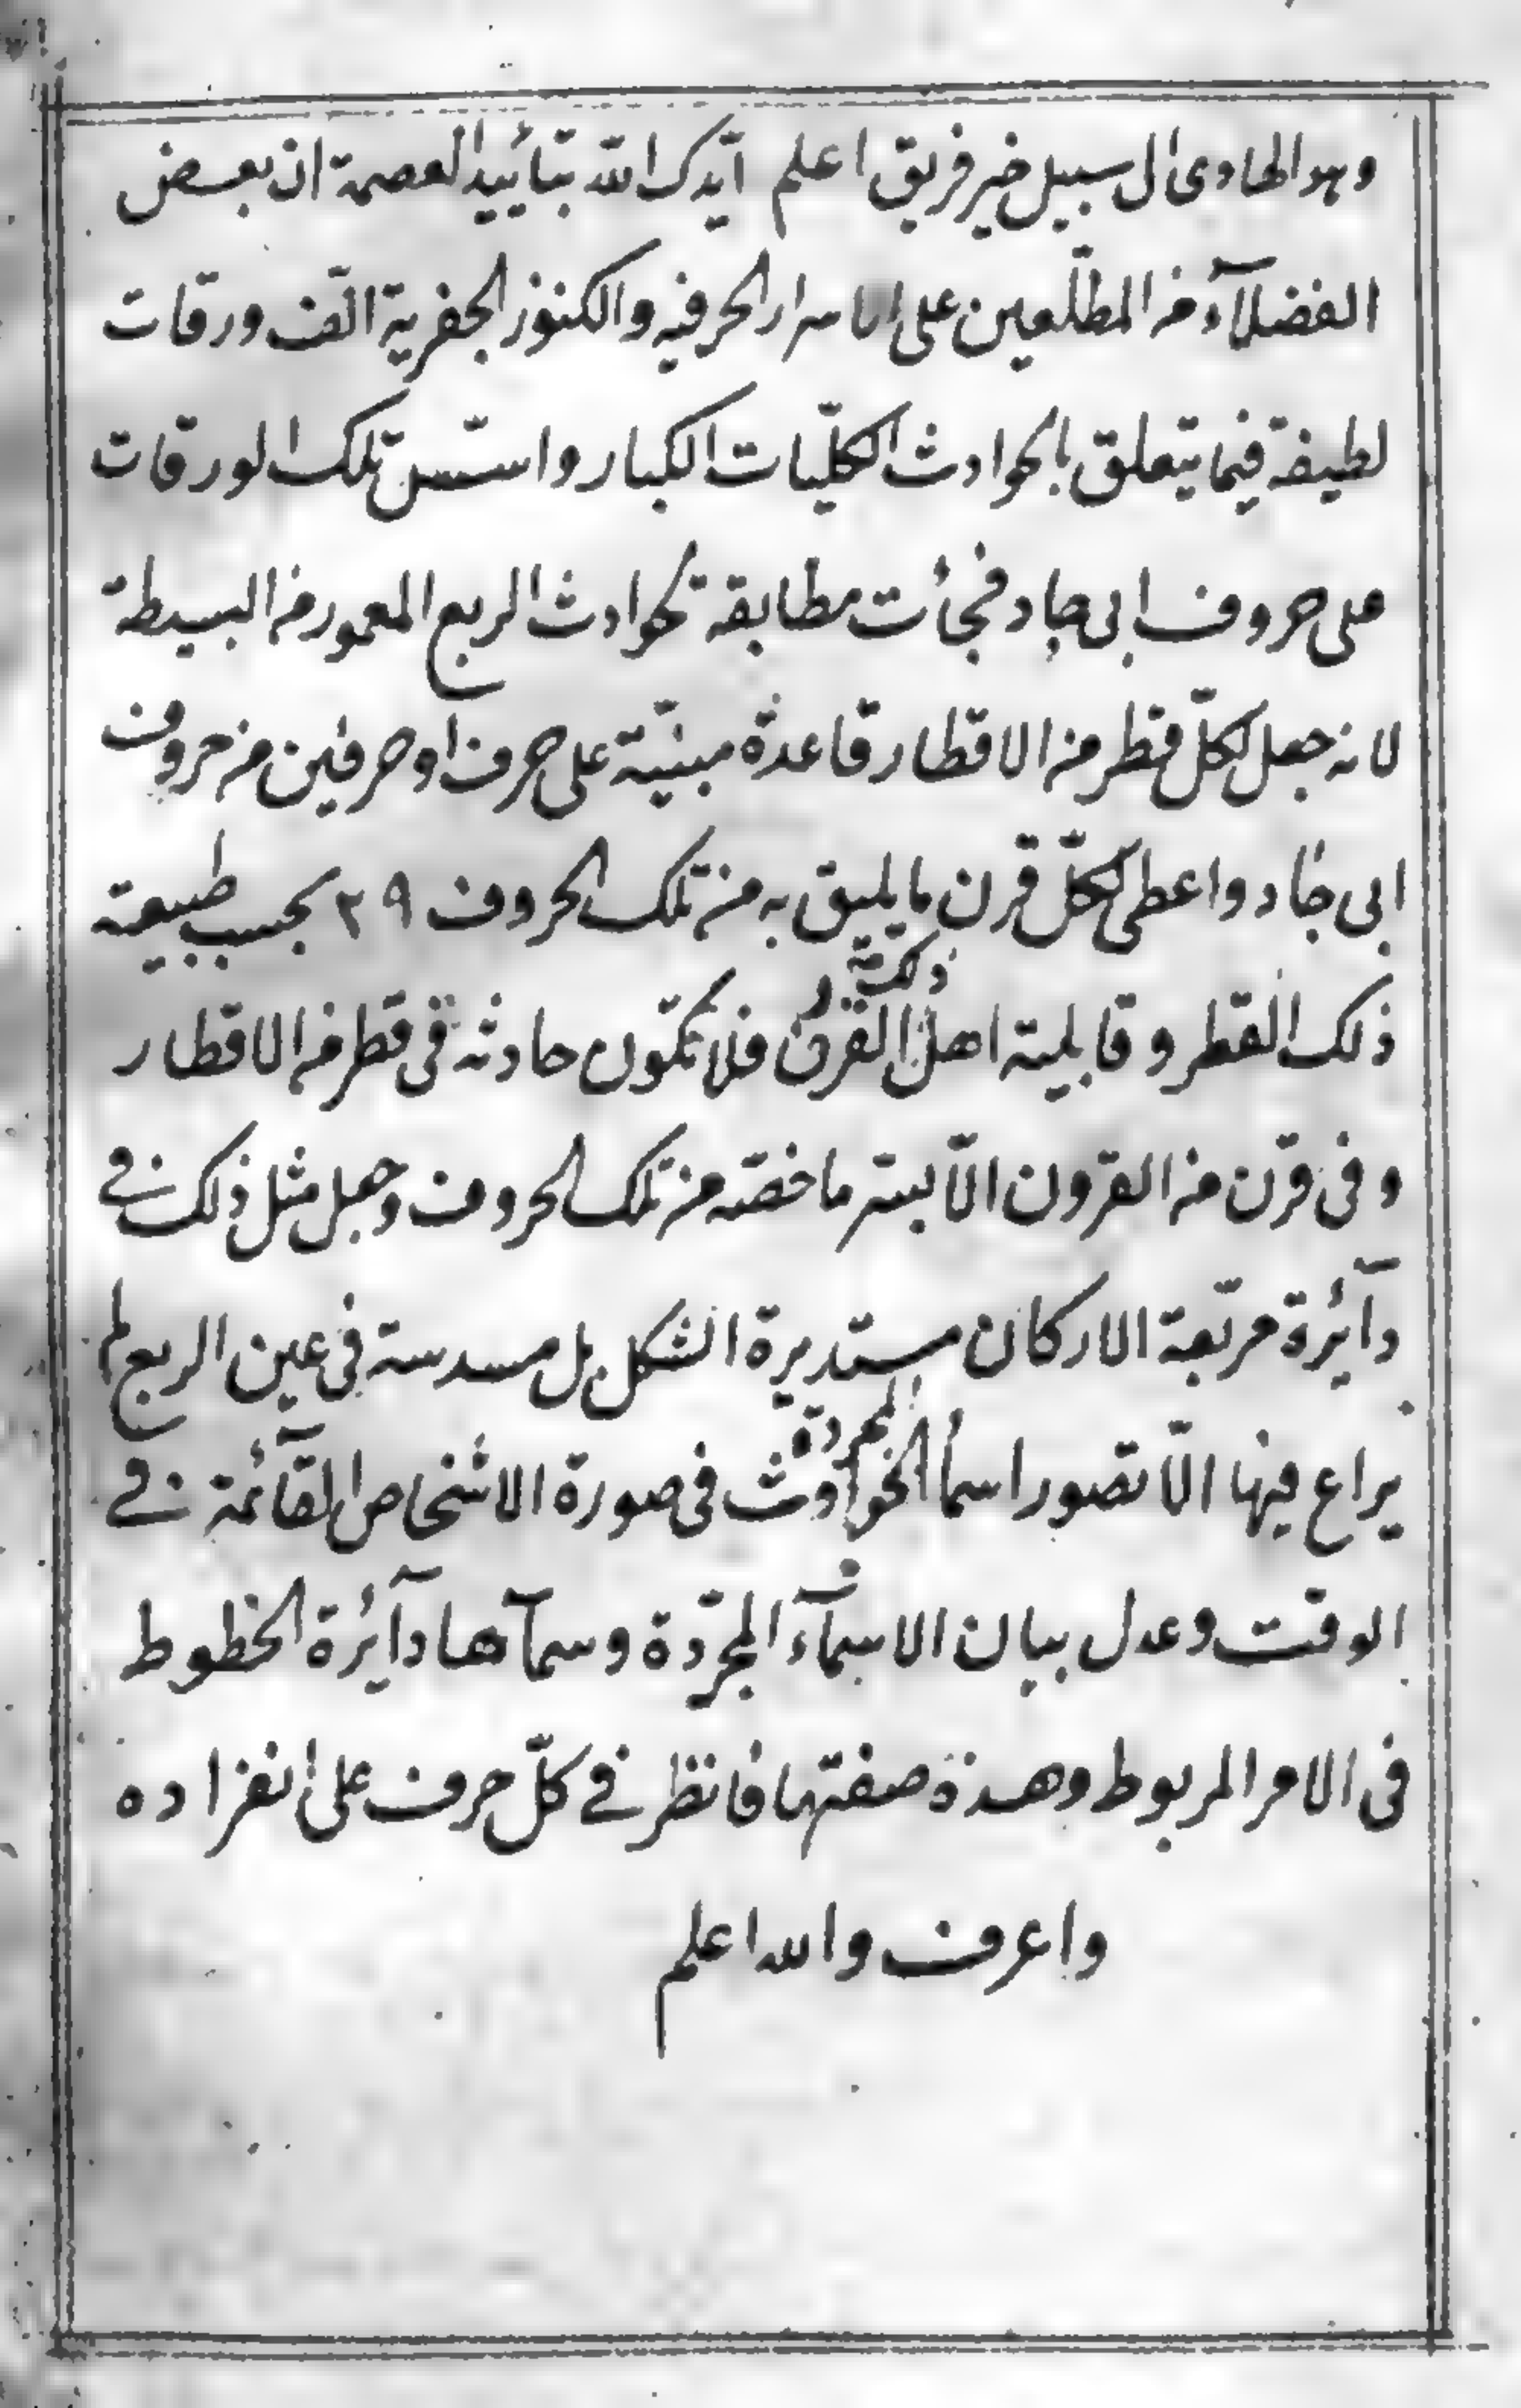 وهو الهادى الى سبيل خير فريق اعلم ايّدك الله بتأييد العصمة ان بعض
الفضلآء من المطلّعين على الاسرار الحرفيه والكنوز الجفرية الّف ورقات
لطيفة فيما يتعلق بالحوادث الكلّيات الكبار واسّس تلك الورقات
على حروف ابى جاد فجأت مطابقة لحوادث الربع المعمور من البسيطة
لانه جعل لكلّ قطر من الاقطار قاعدة مبنيّة على حرف او حرفين من حروف
ابى جاد واعطى لكلّ قرن ما يليق به من تلك الحروف ٢٩ بحسب طبيعة
ذلك القطر وقابلية اهل ذلك القرن فلا تكّون حادثة فى قطر من الاقطار
وفى قرن من القرون الّا بسّر ما خصّه من تلك الحروف وجعل مثل ذلك فى
دآئرة مربّعة الاركان مستديرة الشكل بل مسدسة فى عين الربع لم
يراع فيها الّا تصور اسمأ الحوادث المجردة فى صورة الاشخاص القآئمة فى
الوقت وعدل ببيان الاسمآء المجرّدة وسمآها دآئرة الخطوط
فى الامر المربوط وهذة صفتها فانظر فى كلّ حرف على انفراده
واعرف والله اعلم